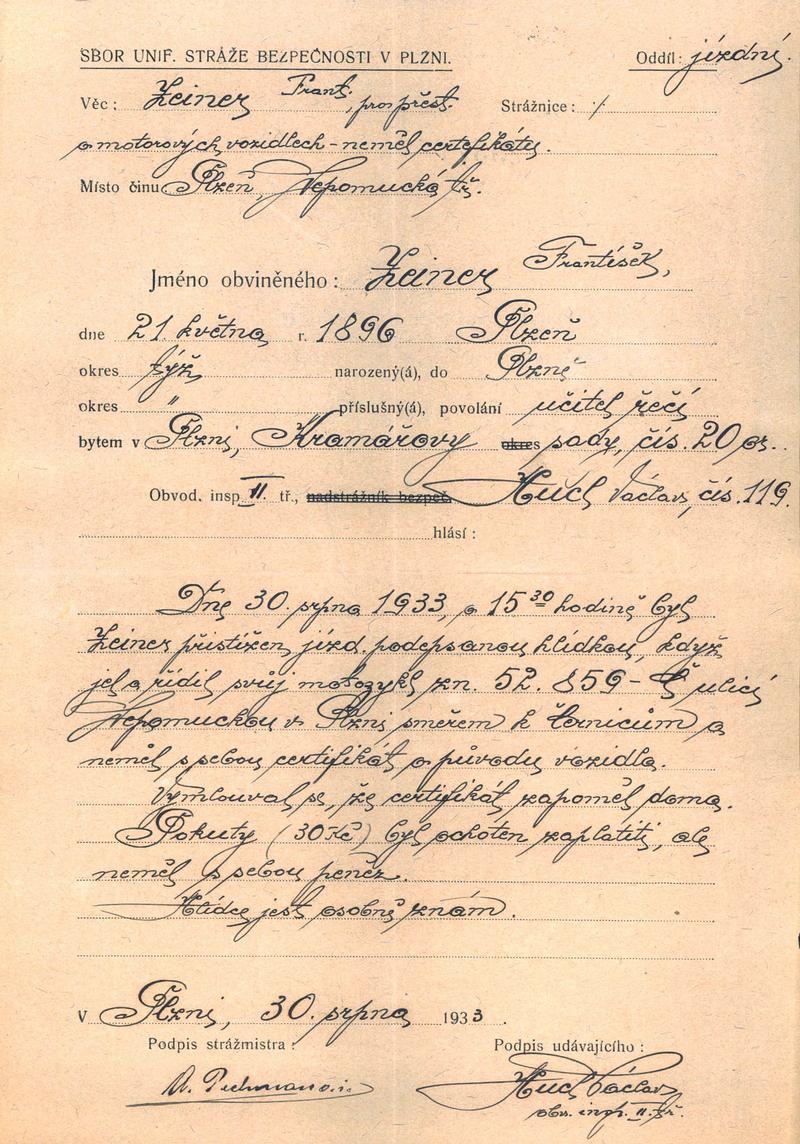 SBOR UNIF. STRÁŽE BEZPEČNOSTI V PLZNI. Oddíl: jízdní.
Věc: Zeiner Frant., pro přest. Strážnice: ⁒
o motorových vozidlech - neměl certifikátu.
Místo činu Plzeň, Nepomucká tř.
Jméno obviněného: Zeiner František,
dne 21. května r. 1896 Plzeň
okres týž narozený(á), do Plzně
okres " příslušný(á), povolání učitel řečí
bytem v Plzni, Kramářovy okres sady, čís. 20
Obvod. insp. II. tř., nadstrážník bezpeč. Huch Václav, čís. 119.
hlásí:
Dne 30. srpna 1933, o 15³⁰ hodině byl
Zeiner přistižen jízd. podepsanou hlídkou, když
jel a řídil svůj motozykl zn. 52.859-Č ulicí
Nepomuckou v Plzni směrem k Černicům a
neměl s sebou certifikát o původu vozidla.
Vymlouval se, že certifikát zapoměl doma.
Pokuty (30 Kč) byl ochoten zaplatiti, ale
neměl s sebou peněz.
Hlídce jest osobně znám.
V Plzni, 30. srpna 1933.
Podpis strážmistra: Podpis udávajícího:
Huch Václav
obv. insp. II. tř.